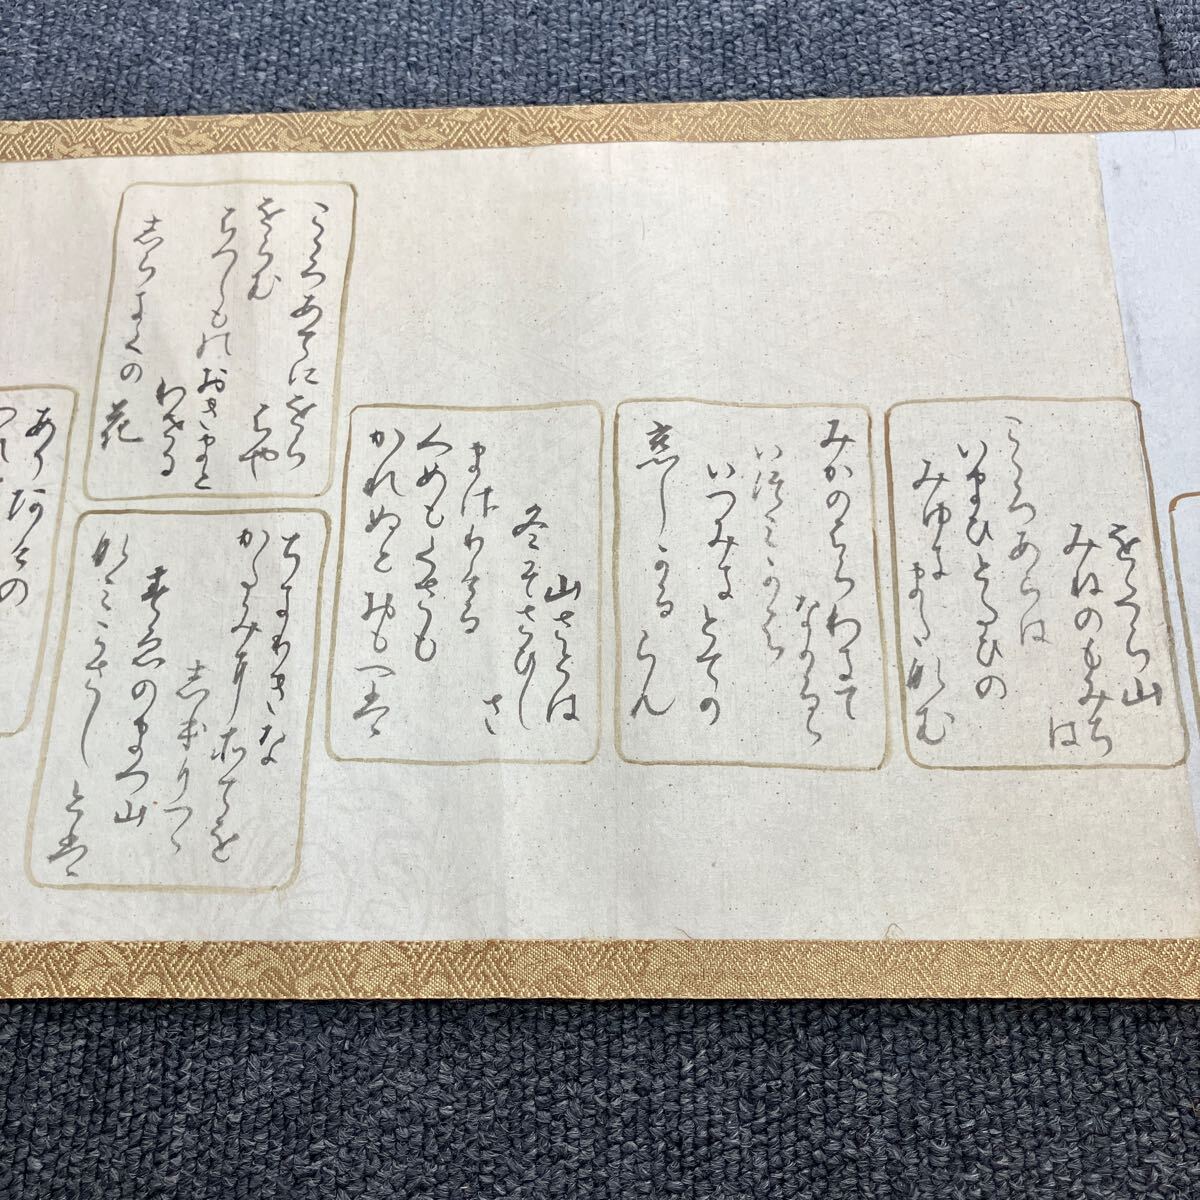 をくら山
みねのもみち
は
こゝろあらは
いまひとたひの
みゆき
またなむ
みかのはらわきて
なかるゝ
いつみかは
いつみき
とての
恋しかる
らん
山さとは
冬そさひし
さ
まさりける
人めもくさも
かれぬと
おもへは
こゝろあてにをら
はや
をらむ
はつしもの
おきまと
わせる
しらきくの
花
ちきりきな
かたみに
そてを
しほりつゝ
すゑのまつ山
なみこさし
とは
ありあけの